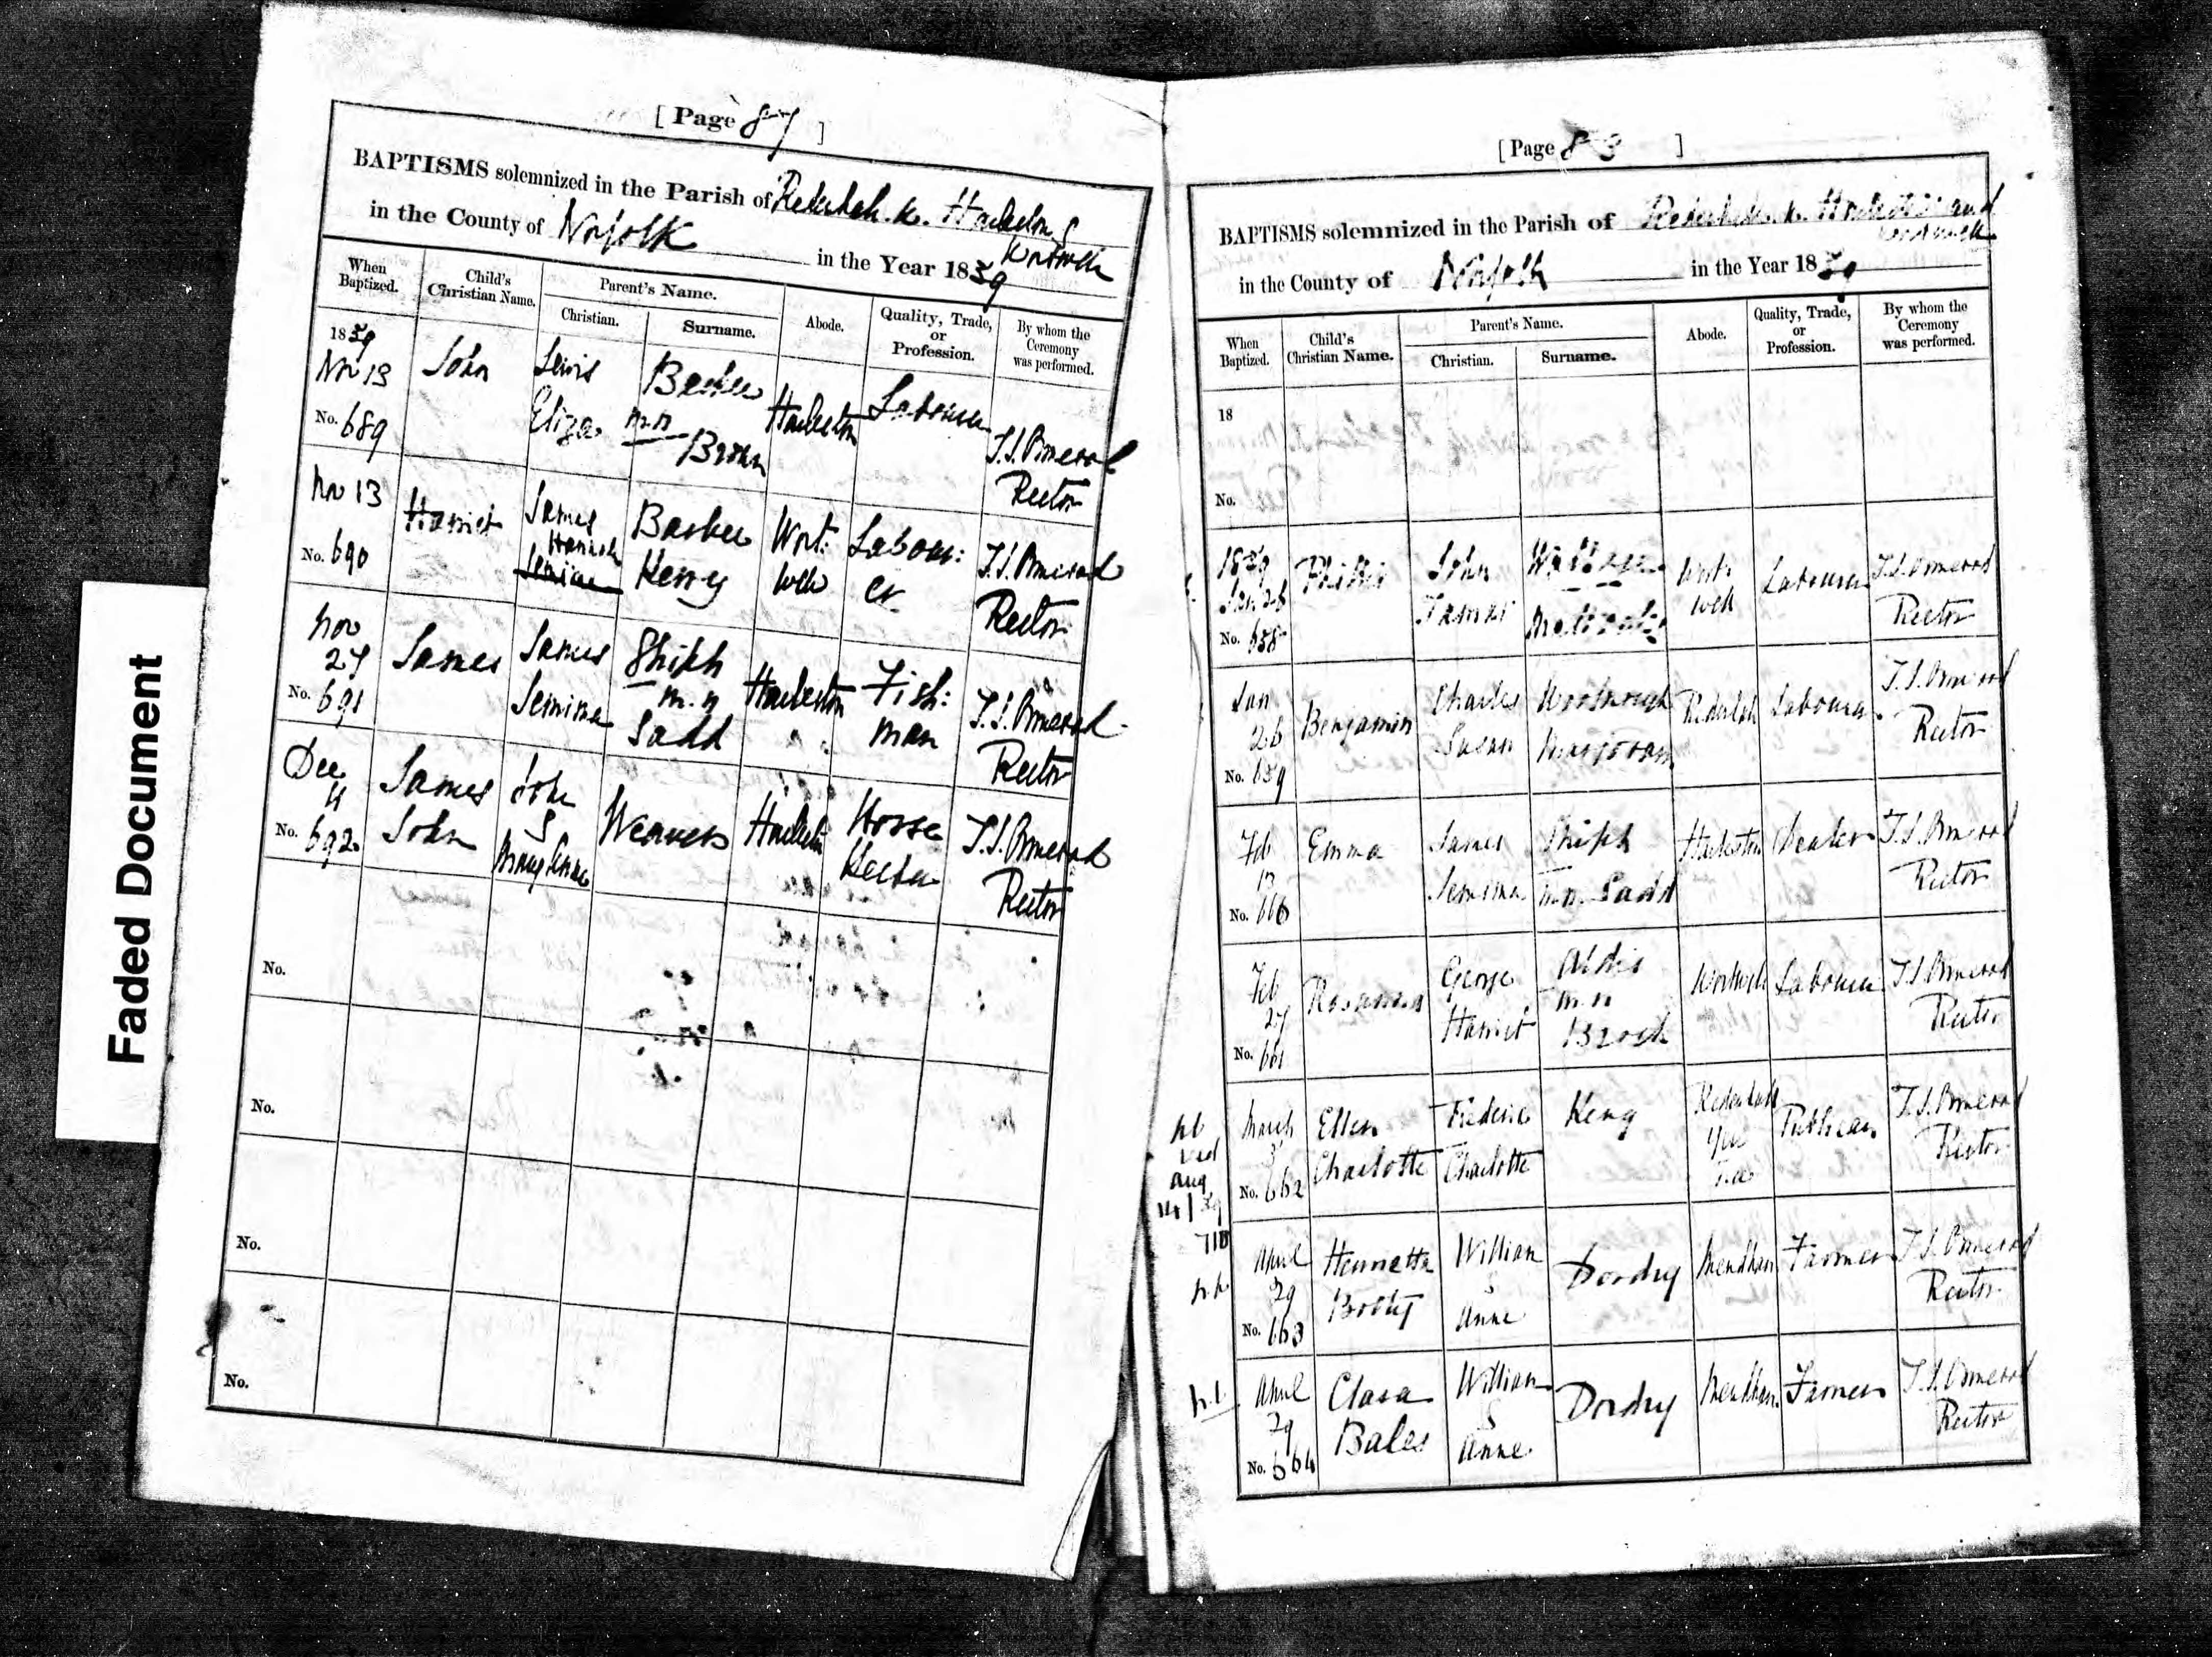 Faded Document
[ Page 87 ]
BAPTISMS solemnized in the Parish of Redenhall w. Harleston &
Wortwell
in the County of Norfolk in the Year 1859
When Baptized.
Child's Christian Name.
Parent's Name.
Christian.
Surname.
Abode.
Quality, Trade, or Profession.
By whom the Ceremony was performed.
1859
Nov 13
No. 689
John
Lewis
Eliza
Barber
m.n
Brown
Harleston
Labourer
T.S. Ormerod
Rector
Nov 13
No. 690
Harriet
James
Hannah
Barber
Wort:
well
Labour:
er
T.S. Ormerod
Rector
Nov
27
No. 691
James
James
Jemima
Shiph
m.n
Sadd
Harleston
Fish:
man
T.S. Ormerod
Rector
Dec
11
No. 692
James
John
John
&
Mary Anne
Weavers
Harleston
Horse
Keeper
T.S. Ormerod
Rector
No.
No.
No.
No.
[ Page 83 ]
BAPTISMS solemnized in the Parish of Redenhall w. Harleston and
Wortwell
in the County of Norfolk in the Year 1859
When Baptized.
Child's Christian Name.
Parent's Name.
Christian.
Surname.
Abode.
Quality, Trade, or Profession.
By whom the Ceremony was performed.
18
No.
1859
Jan 26
No. 658
John
Tamar
Wort:
well
Labourer
T.S. Ormerod
Rector
Jan
26
No. 659
Benjamin
Charles
Susan
Marjoram
Redenhall
Labourer
T.S. Ormerod
Rector
Feb
13
No. 660
Emma
James
Jemima
Shiph
m.n. Sadd
Harleston
Dealer
T.S. Ormerod
Rector
Feb
27
No. 661
Rosanna
George
Harriet
Aldis
m.n
Brock
Wortwell
Labourer
T.S. Ormerod
Rector
March
3
No. 662
Ellen
Charlotte
Frederic
Charlotte
Kerry
Redenhall
Publican
T.S. Ormerod
Rector
Aug
14/59
April
29
No. 663
Henrietta
Botty
William
&
Anne
Dordry
Mendham
Farmer
T.S. Ormerod
Rector
April
29
No. 664
Clara
Bales
William
&
Anne
Dordry
Mendham
Farmer
T.S. Ormerod
Rector